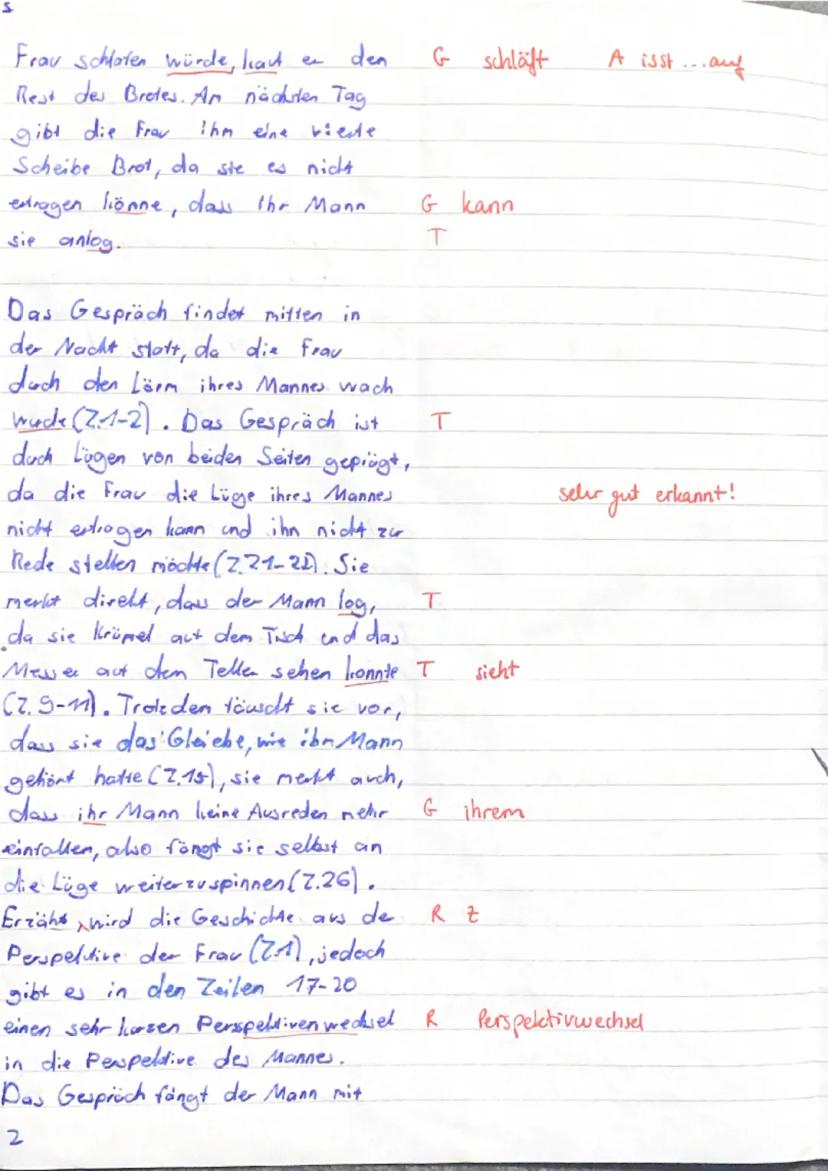 s
Frau schlafen würde, kaut er den G schläft A isst ... auf
Rest des Brotes. Am nächsten Tag
gibt die Frau ihm eine vierte
Scheibe Brot, da sie es nicht
ertragen könne, dass ihr Mann G kann
sie anlog. T
Das Gespräch findet mitten in
der Nacht statt, da die Frau
durch den Lärm ihres Mannes wach
wurde (Z.1-2). Das Gespräch ist T
durch Lügen von beiden Seiten geprägt,
da die Frau die Lüge ihres Mannes sehr gut erkannt!
nicht ertragen kann und ihn nicht zur
Rede stellen möchte (Z.21-22). Sie
merkt direkt, dass der Mann log, T
da sie Krümel auf dem Tisch und das
Messer auf dem Teller sehen konnte T sieht
(Z. 9-11). Trotzdem täuscht sie vor,
dass sie das Gleiche, wie ihr Mann
gehört hatte (Z.15), sie merkt auch,
dass ihr Mann keine Ausreden mehr G ihrem
einfallen, also fängt sie selbst an
die Lüge weiterzuspinnen (Z.26).
Erzäht wird die Geschichte aus der R Z
Perspektive der Frau (Z.1), jedoch
gibt es in den Zeilen 17-20
einen sehr kurzen Perspektivenwechsel R Perspektivwechsel
in die Perspektive des Mannes.
Das Gespräch fängt der Mann mit
2